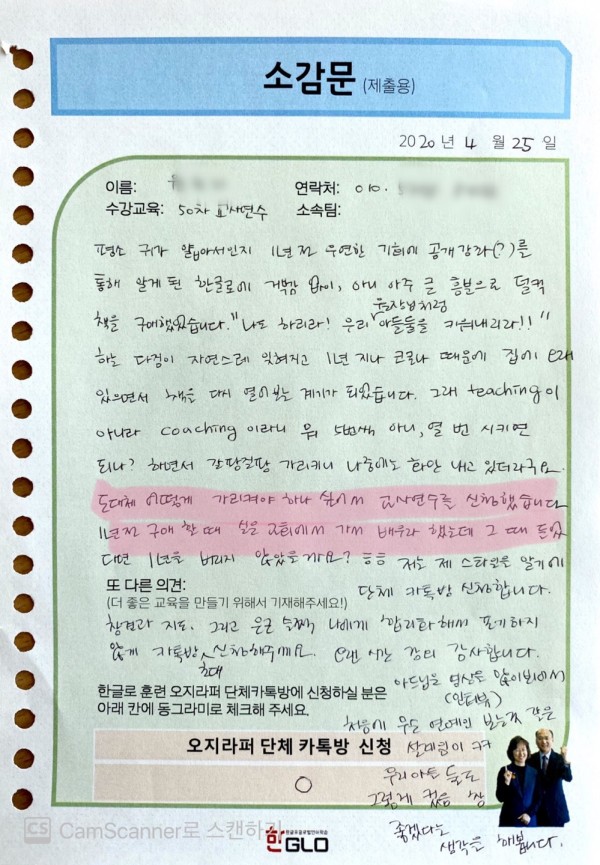 소감문 (제출용)
2020 년 4 월 25 일
이름:
연락처: 010.
수강교육: 50차 교사연수 소속팀:
평소 귀가 얇아서인지 1년 전 우연한 기회에 공개강좌(?)를
통해 알게 된 한글로에 거부감 없이, 아니 아주 큰 흥분으로 덜컥
책을 구매했었습니다. "나도 하리라! 우리 원장님처럼 아들둘을 키워내리라!!"
하는 다짐이 자연스레 잊혀지고 1년 지나 코로나 때문에 집에 오래
있으면서 책을 다시 열어보는 계기가 되었습니다. 그래 teaching이
아니라 coaching 이라니 뭐 5번씩 아니, 열 번 시키면
되나? 하면서 갈팡질팡 가리키니 나중에는 화만 내고 있더라구요.
도대체 어떻게 가리켜야 하나 싶어서 교사연수를 신청했습니다
1년전 구매 할 때 실은 교회에서 가서 배우라 했는데 그 때 들었
다면 1년을 버리지 않았을까요? ㅎㅎ 저는 제 스타일을 알기에
단체 카톡방 신청합니다.
또 다른 의견:
(더 좋은 교육을 만들기 위해서 기재해주세요!)
참견과 지도. 그리고 은근 슬쩍 나에게 합리화해서 포기하지
않게 카톡방 초대 신청해주세요. 오랜 시간 강의 감사합니다.
한글로 훈련 오지라퍼 단체카톡방에 신청하실 분은
아래 칸에 동그라미로 체크해 주세요.
아드님을 영상을 많이봐서
(인터뷰)
처음에 무슨 연예인 보는것 같은
오지라퍼 단체 카톡방 신청
○
설레임이 ㅋㅋ
우리아들 둘도
그렇게 컸음 참
좋겠다는
생각을 해봅니다.
한GLO
CS CamScanner로 스캔하기